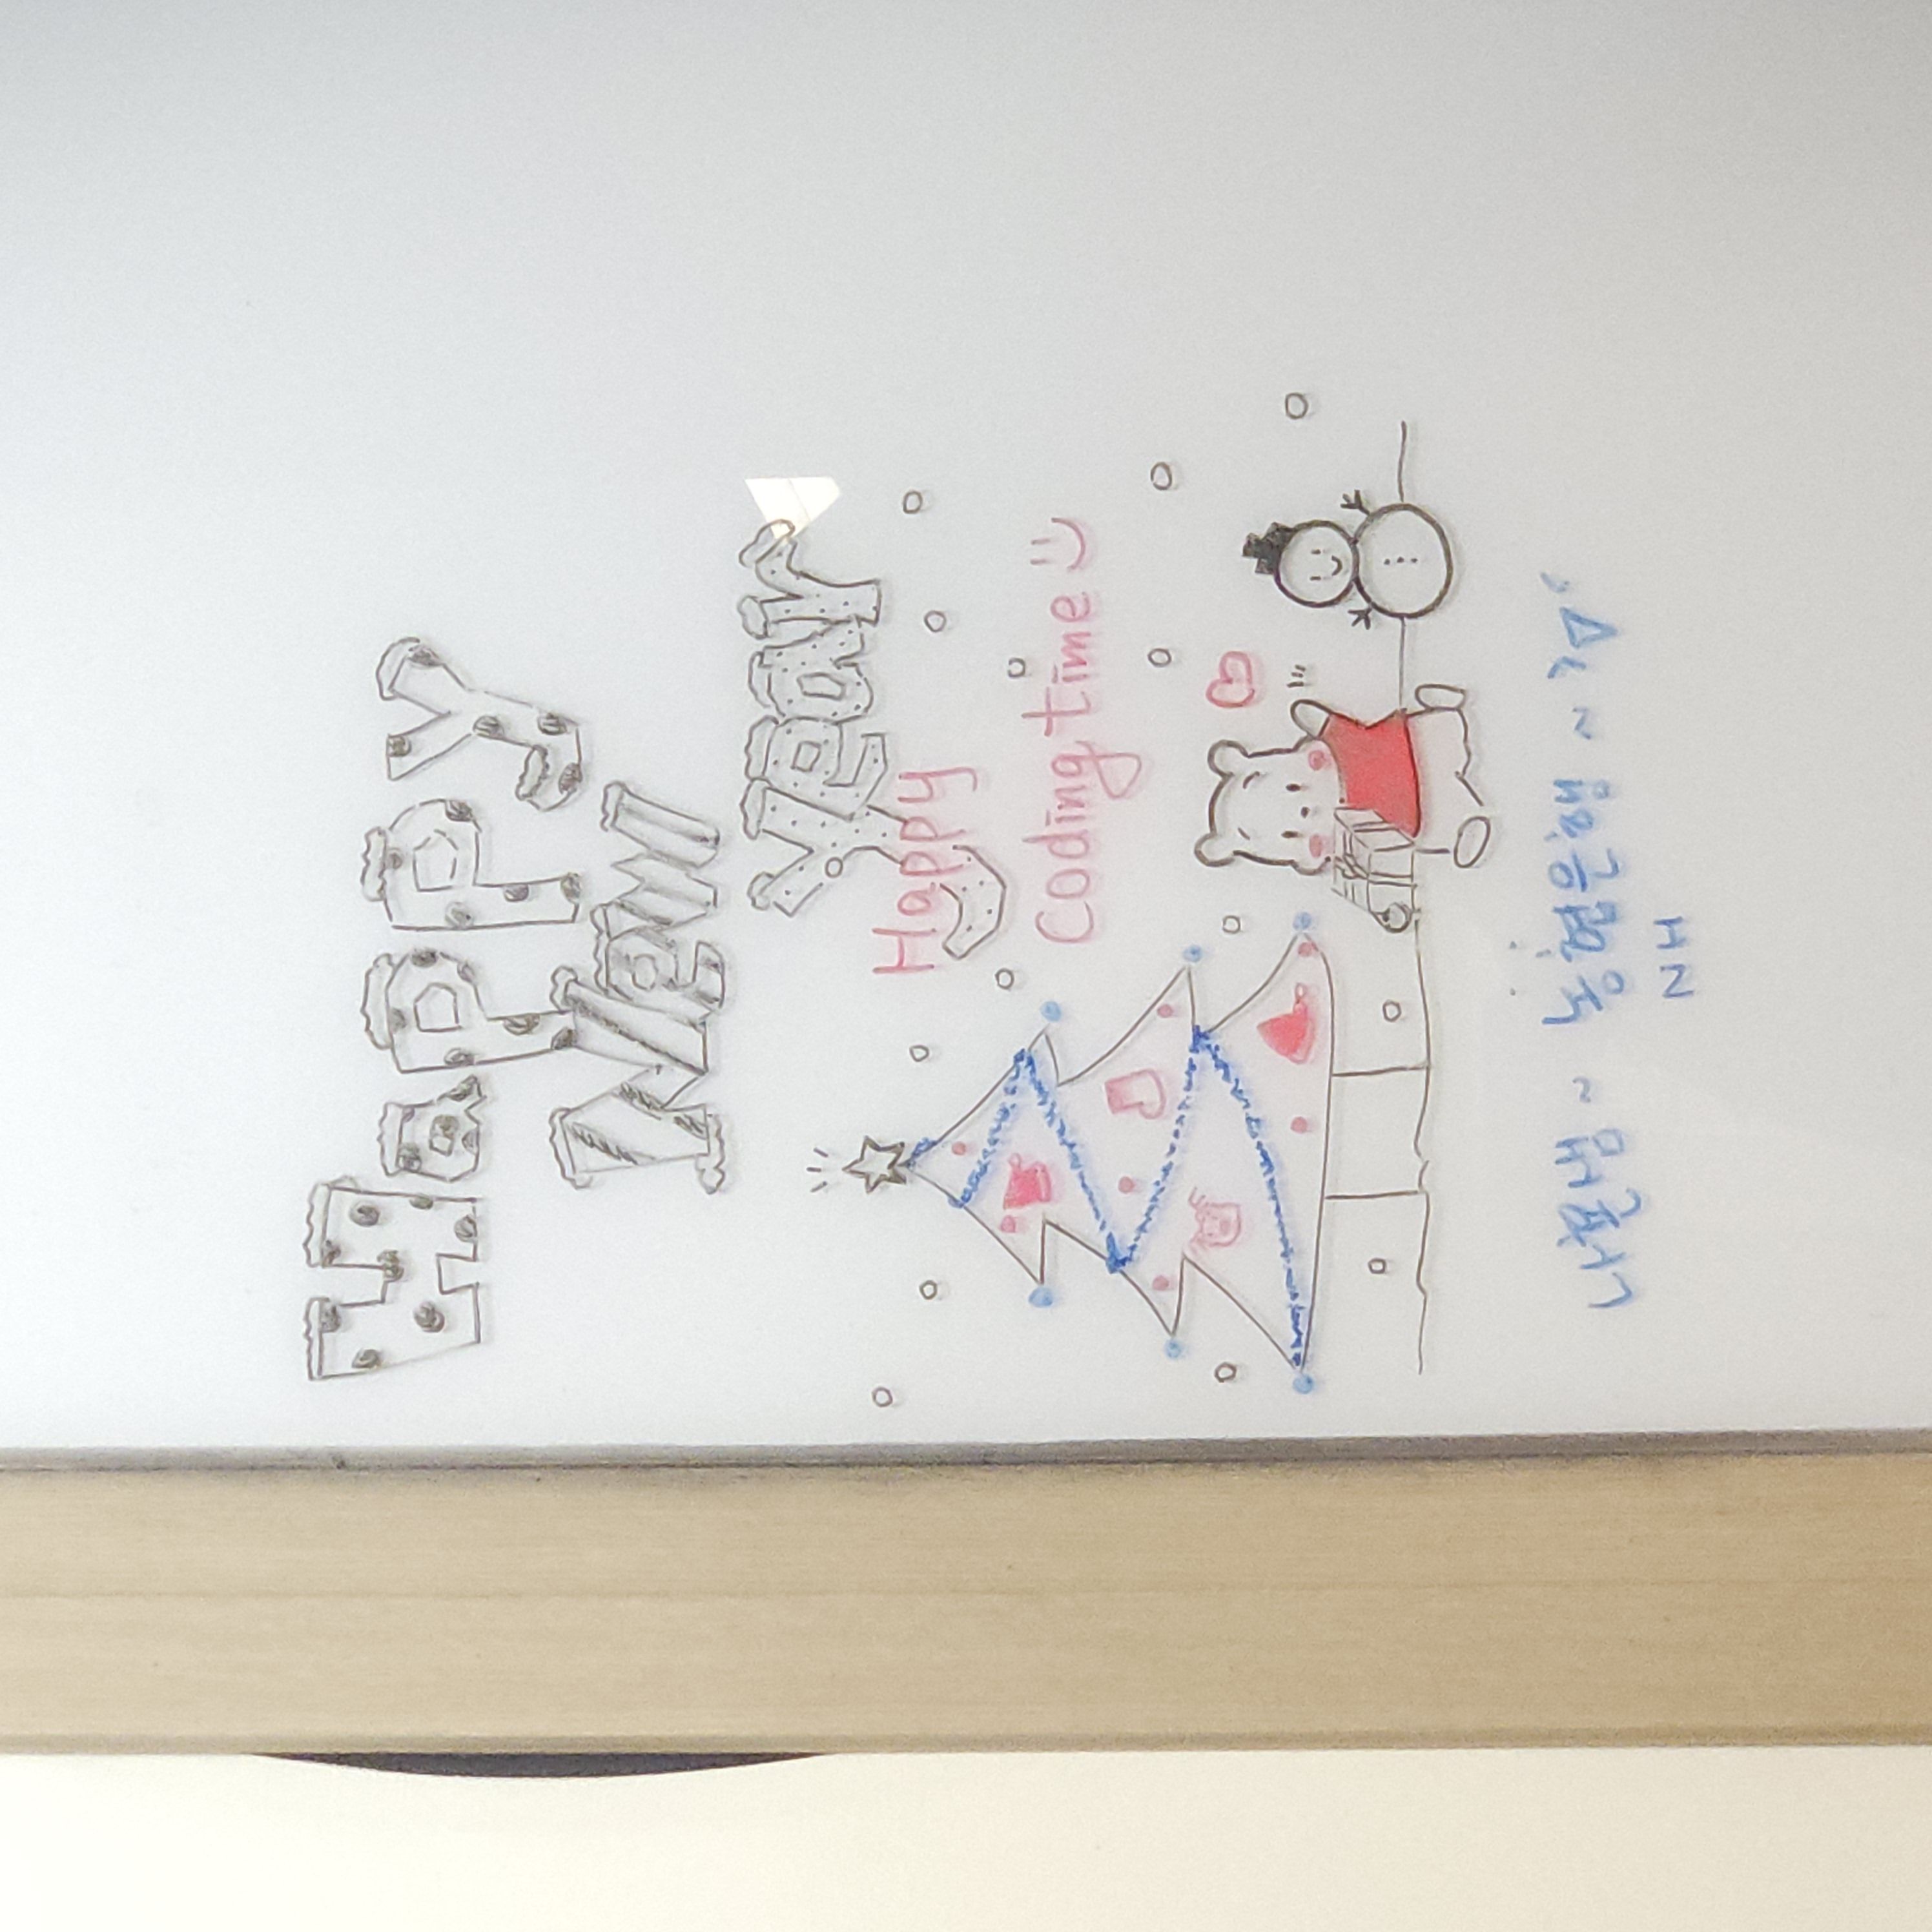 Happy
New
year
Happy
Coding time
나혼샘~ 농협은행~
NH